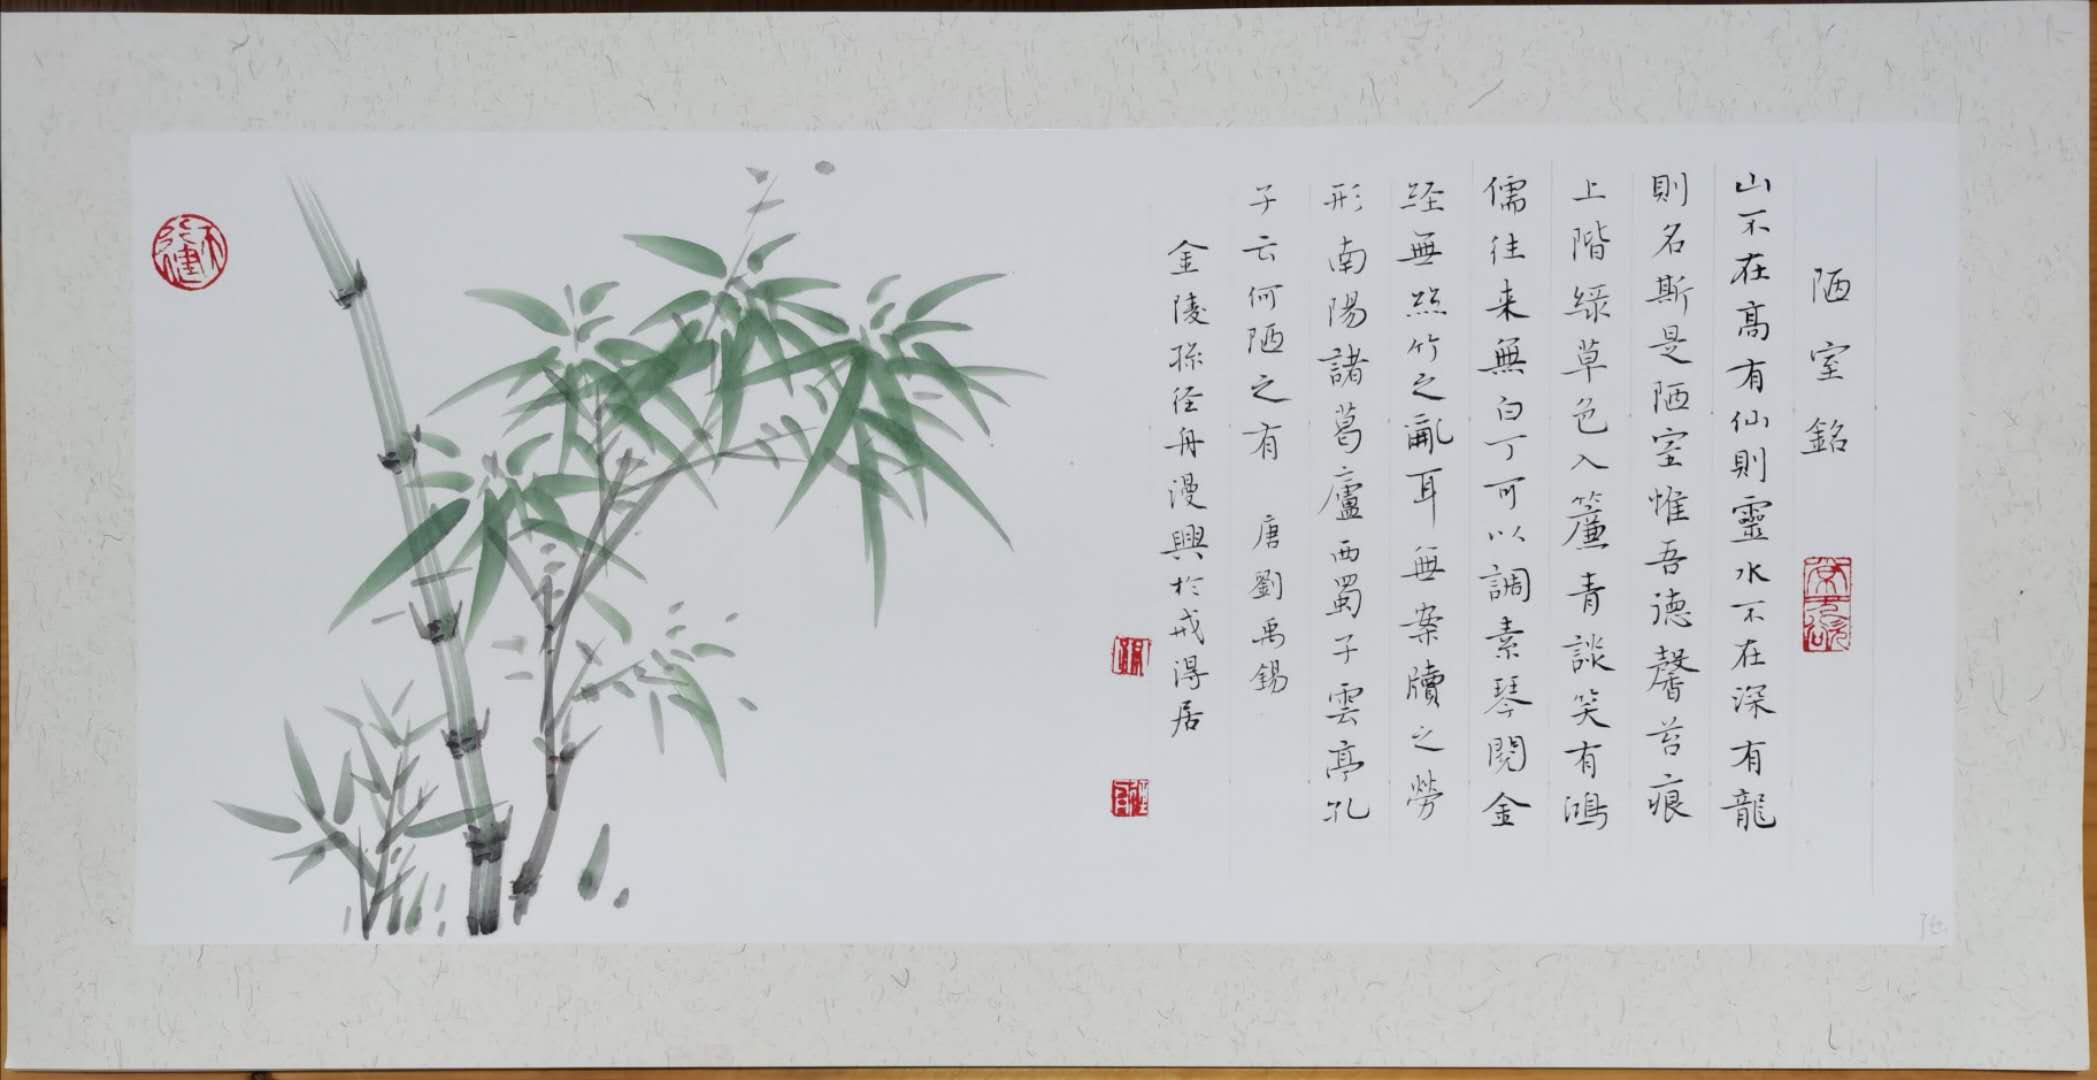 陋室銘
山不在高有仙則靈水不在深有龍
則名斯是陋室惟吾德馨苔痕
上階綠草色入簾青談笑有鴻
儒往来無白丁可以調素琴閱金
經無絲竹之亂耳無案牘之勞
形南陽諸葛廬西蜀子雲亭孔
子云何陋之有 唐劉禹錫
金陵孫徑舟漫興於戒得居